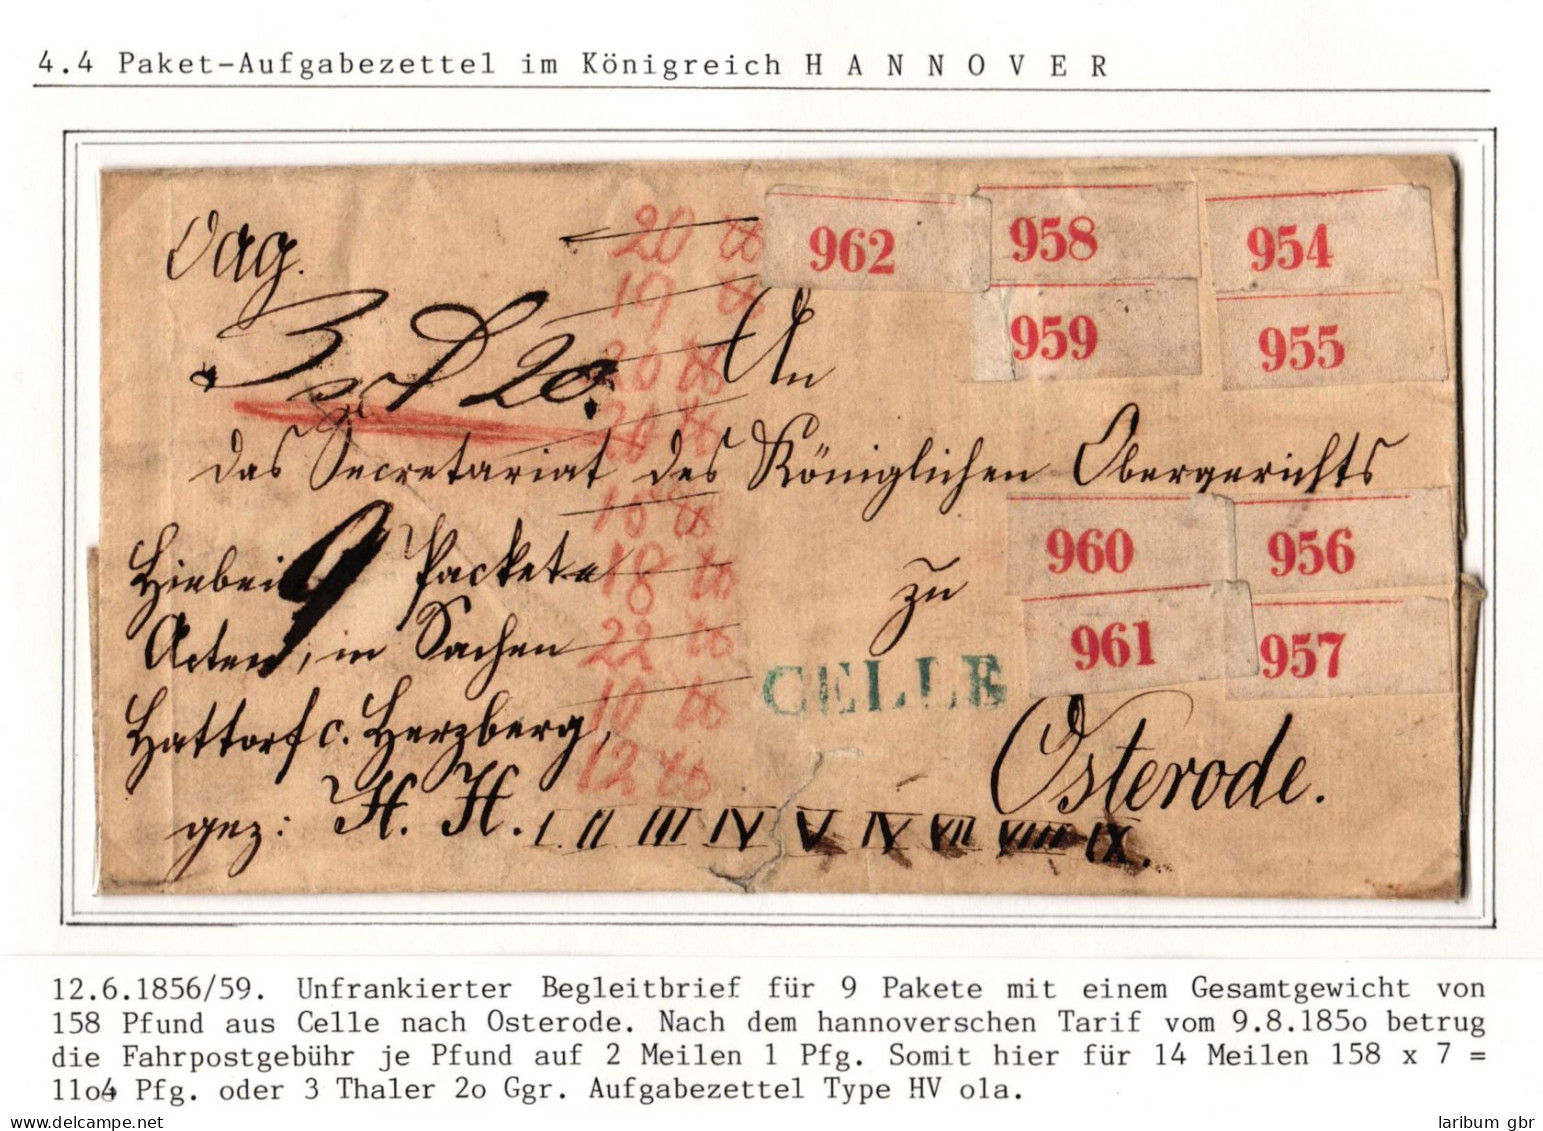 4.4 Paket-Aufgabezettel im Königreich H A N N O V E R
962 958 954
959 955
20 ℔
19 ℔
20 ℔
20 ℔
18 ℔
22 ℔
10 ℔
12 ℔
3 20.
An
das Secretariat des Königlichen Obergerichts
Hiebei 9 Packete
zu
960 956
Acten, in Sachen
961 957
CELLE
Hattorf c. Herzberg,
Osterode.
gez: H. H. I II III IV V IV VII VIII IX.
12.6.1856/59. Unfrankierter Begleitbrief für 9 Pakete mit einem Gesamtgewicht von
158 Pfund aus Celle nach Osterode. Nach dem hannoverschen Tarif vom 9.8.185o betrug
die Fahrpostgebühr je Pfund auf 2 Meilen 1 Pfg. Somit hier für 14 Meilen 158 x 7 =
11o4 Pfg. oder 3 Thaler 2o Ggr. Aufgabezettel Type HV o1a.
www.delcampe.net
laribum gbr